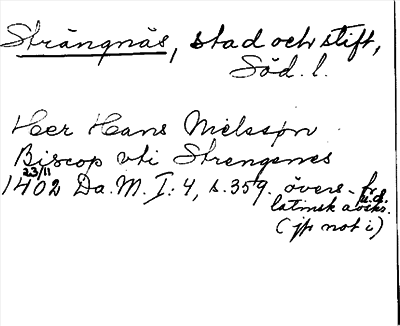 Strängnäs, stad och stift,
Söd. l.
Her Hans Nielssøn
Biscop vti Strengenes
23/11
1402 Da. M. I: 4, s. 359. övers. fr.
latinsk avskr.
(jfr not i)